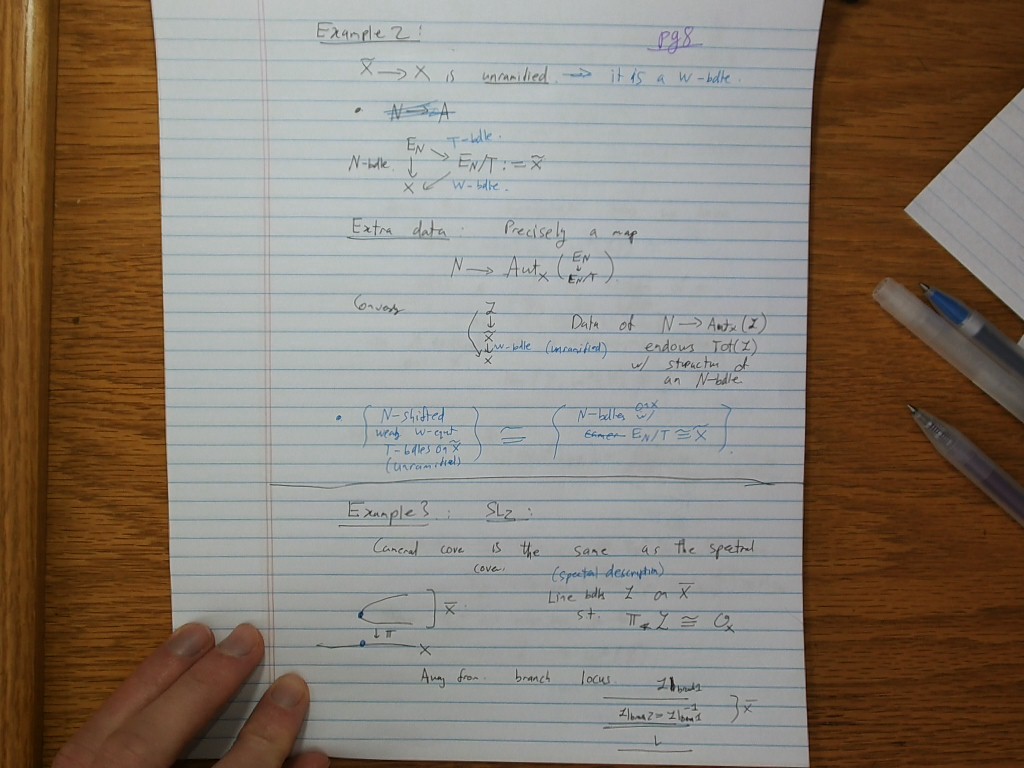 Example 2:
pg 8
X̃ → X is unramified → it is a W-bdle.
• N → A
E_N T-bdle.
N-bdle. ↓ ↘ E_N/T := X̃
X ↙ W-bdle.
Extra data: Precisely a map
N → Aut_X (E_N ↓ E_N/T).
L
↓ Data of N → Aut_X(L)
X̃
↓ W-bdle (unramified) endows Tot(L)
X w/ structure of
an N-bdle.
• { N-shifted weakly W-eqvt T-bdles on X̃ (unramified) } ≅ { N-bdles on X w/ E_N/T ≅ X̃ }.
Example 3: SL2:
Cameral cover is the same as the spectral
cover. (spectral description)
Line bdles L on X̅
] X̅. s.t. π_* L ≅ O_X
↓ π
X
Away from branch locus.
L|bran1
L|bran2 = L|bran1^-1 } X̅